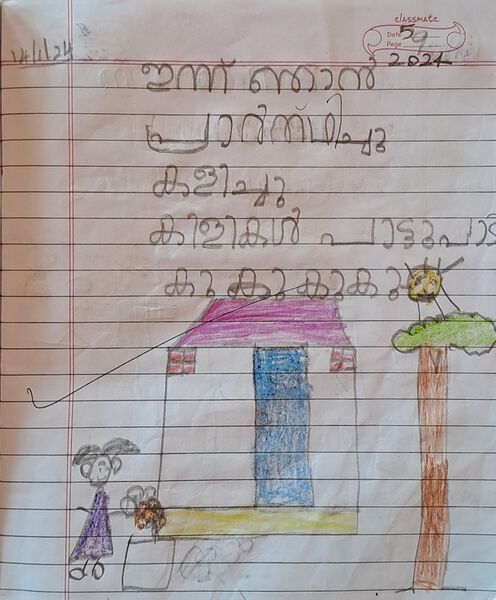 classmate
Date 5 9
Page 2024
ഇന്ന് ഞാൻ
പ്രാർത്ഥിച്ചു
കളിച്ചു
കിളികൾ പാട്ടുപാട
കു കു കു കു